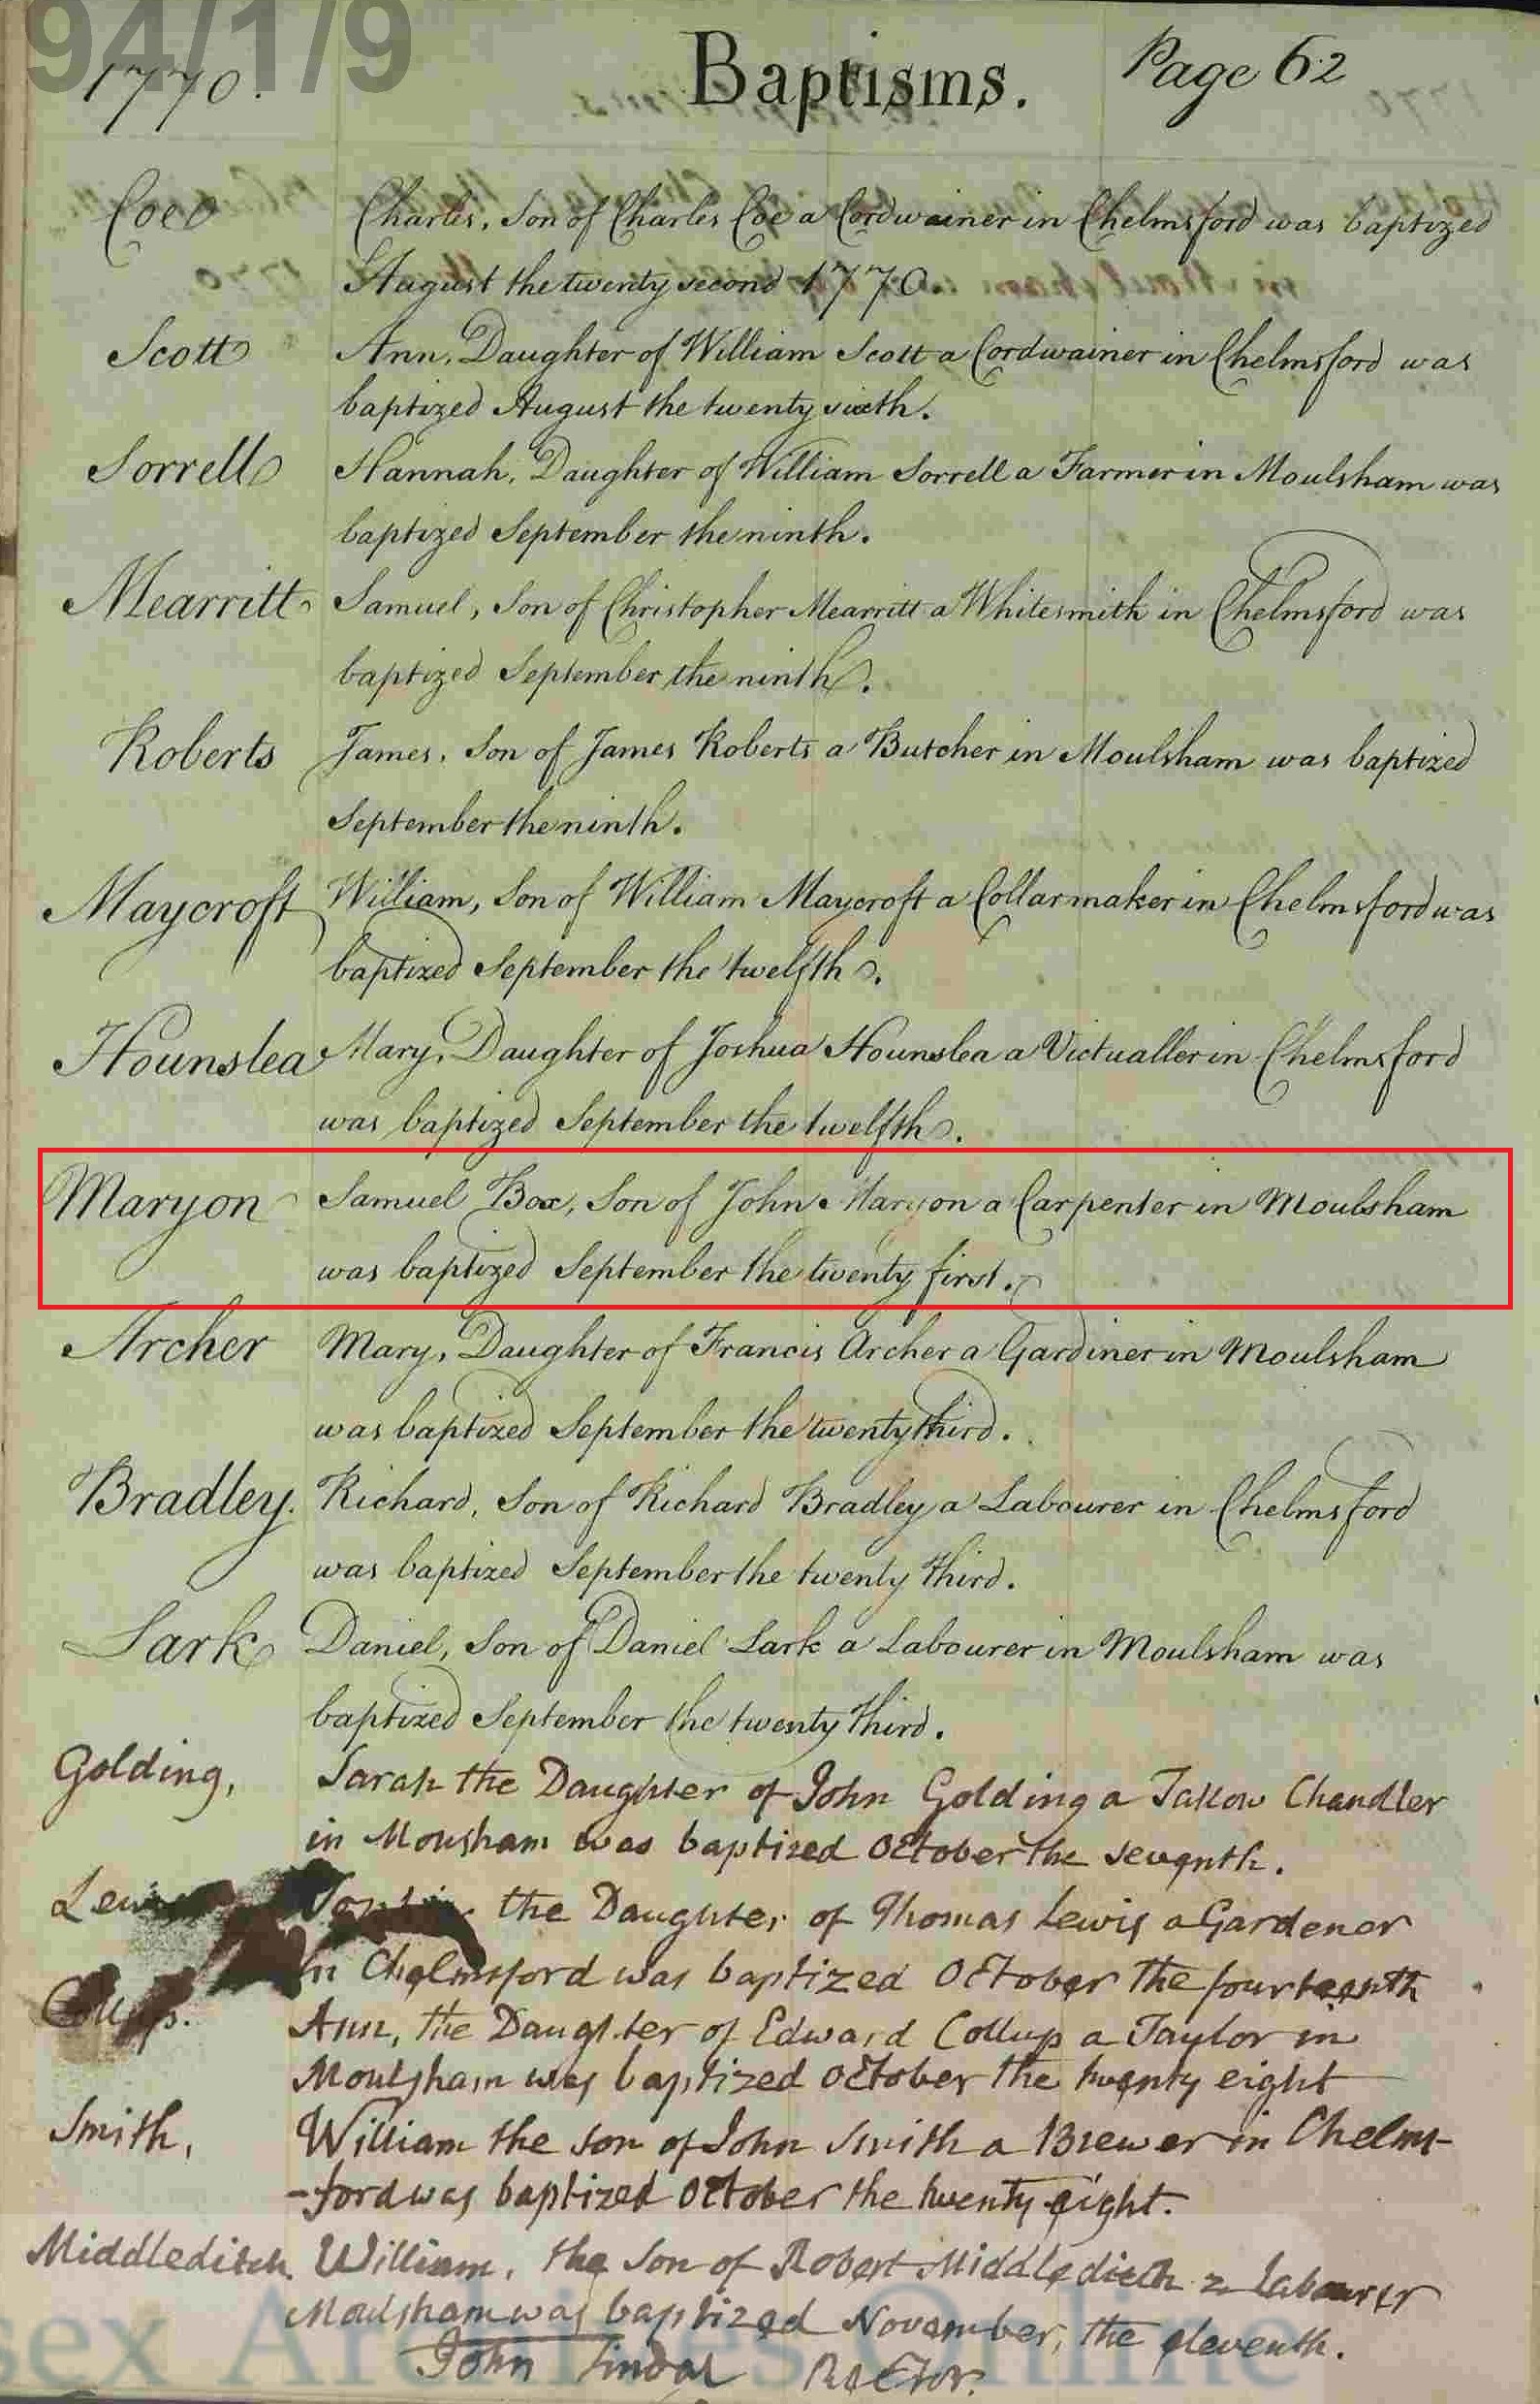 94/1/9
1770.
Baptisms.
Page 62
Coe
Charles, Son of Charles Coe a Cordwainer in Chelmsford was baptized
August the twenty second 1770.
Scott
Ann, Daughter of William Scott a Cordwainer in Chelmsford was
baptized August the twenty sixth.
Sorrell
Hannah, Daughter of William Sorrell a Farmer in Moulsham was
baptized September the ninth.
Mearritt
Samuel, Son of Christopher Mearritt a Whitesmith in Chelmsford was
baptized September the ninth.
Roberts
James, Son of James Roberts a Butcher in Moulsham was baptized
September the ninth.
Maycroft
William, Son of William Maycroft a Collarmaker in Chelmsford was
baptized September the twelfth.
Hounslea
Mary, Daughter of Joshua Hounslea a Victualler in Chelmsford
was baptized September the twelfth.
Maryon
Samuel Box, Son of John Maryon a Carpenter in Moulsham
was baptized September the twenty first.
Archer
Mary, Daughter of Francis Archer a Gardiner in Moulsham
was baptized September the twenty third.
Bradley.
Richard, Son of Richard Bradley a Labourer in Chelmsford
was baptized September the twenty third.
Lark
Daniel, Son of Daniel Lark a Labourer in Moulsham was
baptized September the twenty third.
Golding,
Sarah the Daughter of John Golding a Tallow Chandler
in Moulsham was baptized October the seventh.
the Daughter of Thomas Lewis a Gardener
in Chelmsford was baptized October the fourteenth
Ann, the Daughter of Edward Collup a Taylor in
Moulsham was baptized October the twenty eight
Smith,
William the son of John Smith a Brewer in Chelms-
-ford was baptized October the twenty eight.
Middleditch.
William, the Son of Robert Middleditch a Labourer
Moulsham was baptized November, the eleventh.
John Tindal Rector.
sex Archives Online